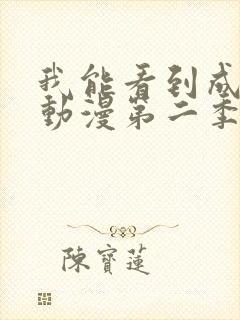 我能看到成
動漫第二季
陳寶蓮